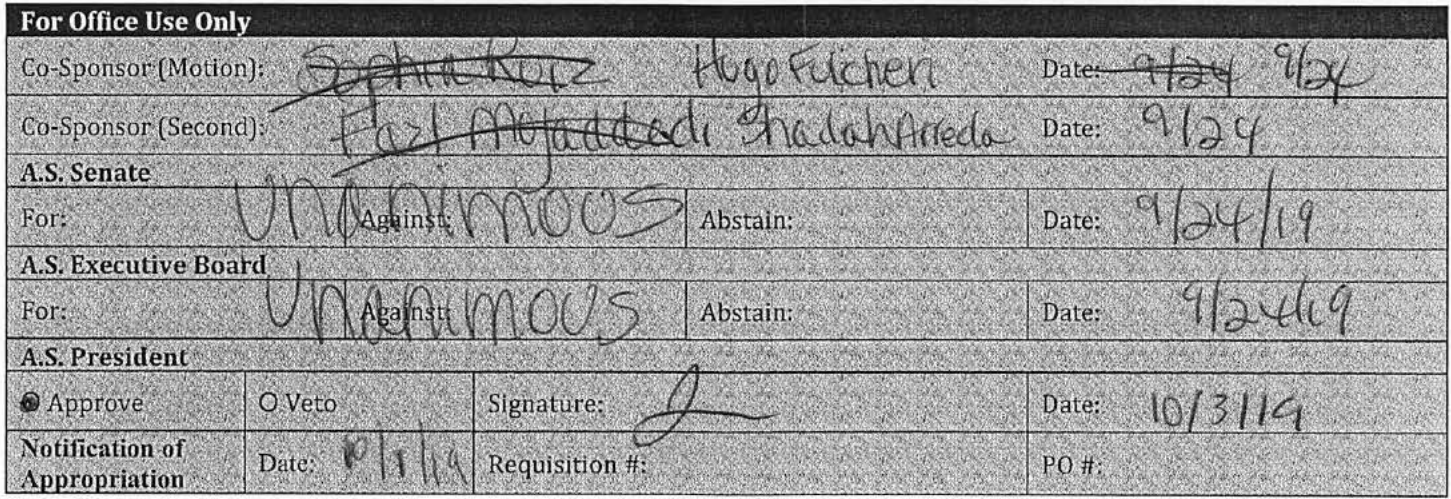 For Office Use Only
Co-Sponsor (Motion): Sophia Ruiz Hugo Fulcheri Date: 9/24 9/24
Co-Sponsor (Second): Fazl Mojaddadi Shadah Arreda Date: 9/24
A.S. Senate
For: Unanimous Against: Abstain: Date: 9/24/19
A.S. Executive Board
For: Unanimous Against: Abstain: Date: 9/24/19
A.S. President
Approve O Veto Signature: Date: 10/3/19
Notification of Appropriation Date: 10/1/19 Requisition #: PO #: